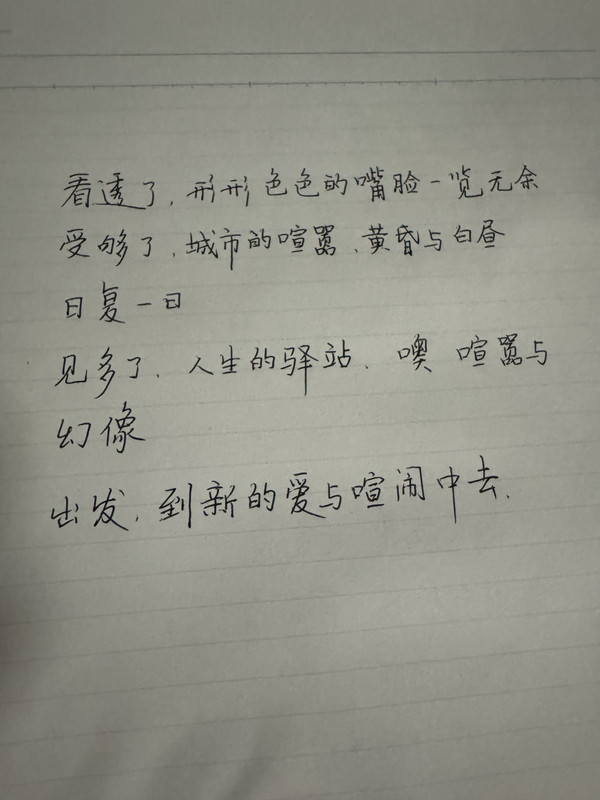 看透了，形形色色的嘴脸一览无余
受够了，城市的喧嚣、黄昏与白昼
日复一日
见多了、人生的驿站、噢 喧嚣与
幻像
出发，到新的爱与喧闹中去.